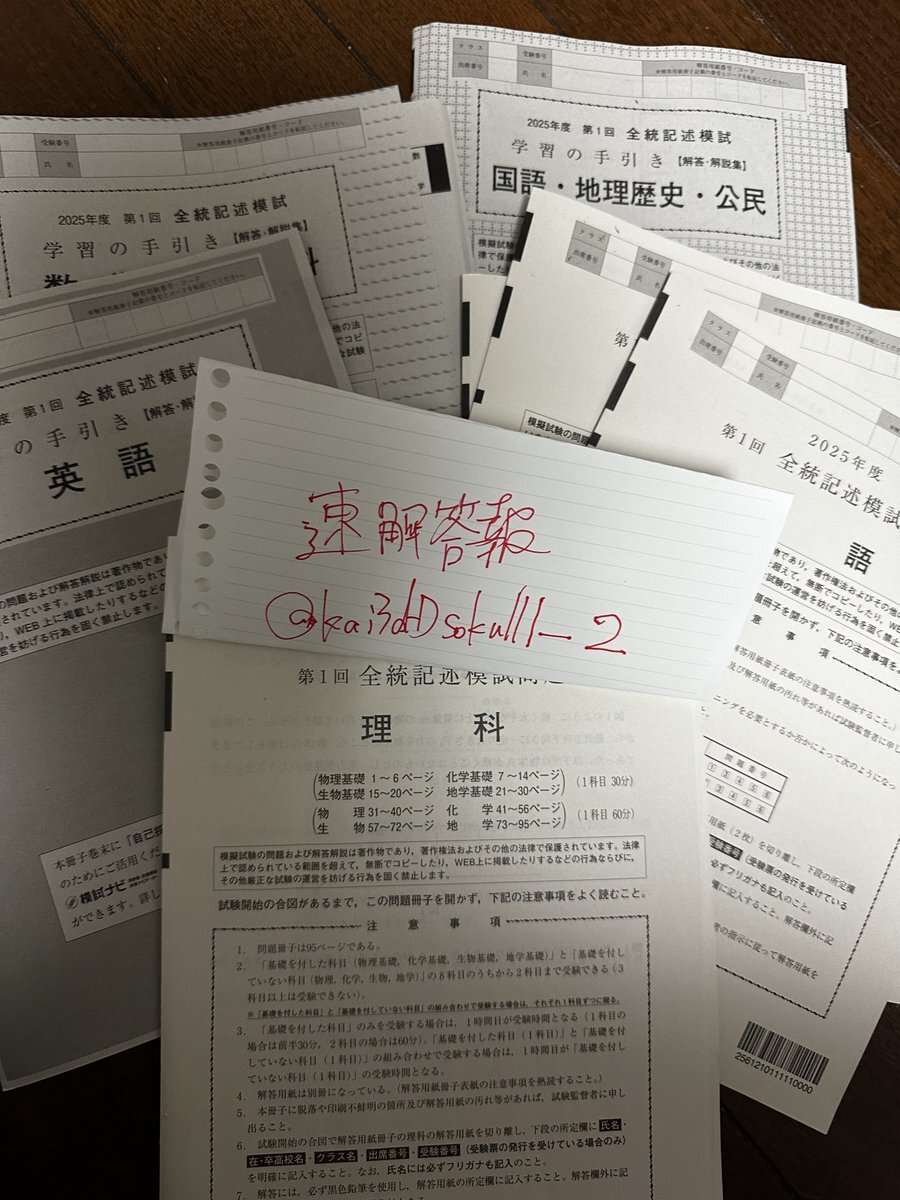 クラス
受験番号
出席番号
氏 名
解答用紙番号・コード
※解答用紙冊子記載の番号とコードを転記してください。
2025年度 第1回 全統記述模試
学習の手引き【解答・解説集】
国語・地理歴史・公民
受験番号
氏 名
解答用紙番号・コード
※解答用紙冊子記載の番号とコードを転記してください。
数
学
2025年度 第1回 全統記述模試
学習の手引き【解答・解説集】
解答用紙番号・コード
※解答用紙冊子記載の番号とコードを転記してください。
度 第1回 全統記述模試
の手引き【解答・解
英 語
の問題および解答解説は著作物であり
されています。法律上で認められて
り、WEB上に掲載したりするなどの
営を妨げる行為を固く禁止します。
本冊子巻末に「自己採
のためにご活用くだ
模試ナビ
ができます。詳し
クラス
受験番号
出席番号
氏 名
第
模擬試験の問題
解答用紙番号・コード
※解答用紙冊子記載の番号とコードを転記してください。
クラス
受験番号
出席番号
氏 名
2025年度
第1回 全統記述模試
語
物であり，著作権法およびその他の
超えて，無断でコピーしたり，
試験の運営を妨げる行為を固く禁止
題冊子を開かず，下記の注意事項をよ
意 事 項
解答用紙冊子表紙の注意事項を熟読すること。）
及び解答用紙の汚れ等があれば試験監督者に申し
ーニングを必要とするか否かによって次のようになっ
問題番号
用紙（2枚）を切り離し，下段の所定欄
受験番号（受験票の発行を受けている
必ずフリガナも記入のこと。
欄に記入すること。解答欄外に記
者の指示に従って解答用紙を
2561210111110000
速解答報
@kai3dtDsokul11_2
第1回 全統記述模試問題
理 科
物理基礎 1〜6ページ 化学基礎 7〜14ページ
生物基礎 15〜20ページ 地学基礎 21〜30ページ
（1科目 30分）
物 理 31〜40ページ 化 学 41〜56ページ
生 物 57〜72ページ 地 学 73〜95ページ
（1科目 60分）
模擬試験の問題および解答解説は著作物であり，著作権法およびその他の法律で保護されています。法律
上で認められている範囲を超えて，無断でコピーしたり，WEB上に掲載したりするなどの行為ならびに，
その他厳正な試験の運営を妨げる行為を固く禁止します。
試験開始の合図があるまで，この問題冊子を開かず，下記の注意事項をよく読むこと。
注 意 事 項
1. 問題冊子は95ページである。
2. 「基礎を付した科目（物理基礎，化学基礎，生物基礎，地学基礎）」と「基礎を付し
ていない科目（物理，化学，生物，地学）」の8科目のうちから2科目まで受験できる（3
科目以上は受験できない）。
※「基礎を付した科目」と「基礎を付していない科目」の組み合わせで受験する場合は，それぞれ1科目ずつに限る。
3. 「基礎を付した科目」のみを受験する場合は，1時間目が受験時間となる（1科目の
場合は前半30分，2科目の場合は60分）。「基礎を付した科目（1科目）」と「基礎を付
していない科目（1科目）」の組み合わせで受験する場合は，1時間目が「基礎を付して
いない科目（1科目）」の受験時間となる。
4. 解答用紙は別冊になっている。（解答用紙冊子表紙の注意事項を熟読すること。）
5. 本冊子に脱落や印刷不鮮明の箇所及び解答用紙の汚れ等があれば，試験監督者に申し
出ること。
6. 試験開始の合図で解答用紙冊子の理科の解答用紙を切り離し，下段の所定欄に氏名・
在・卒高校名・クラス名・出席番号・受験番号（受験票の発行を受けている場合のみ）
を明確に記入すること。なお，氏名には必ずフリガナも記入のこと。
7. 解答には，必ず黒色鉛筆を使用し，解答用紙の所定欄に記入すること。解答欄外に記